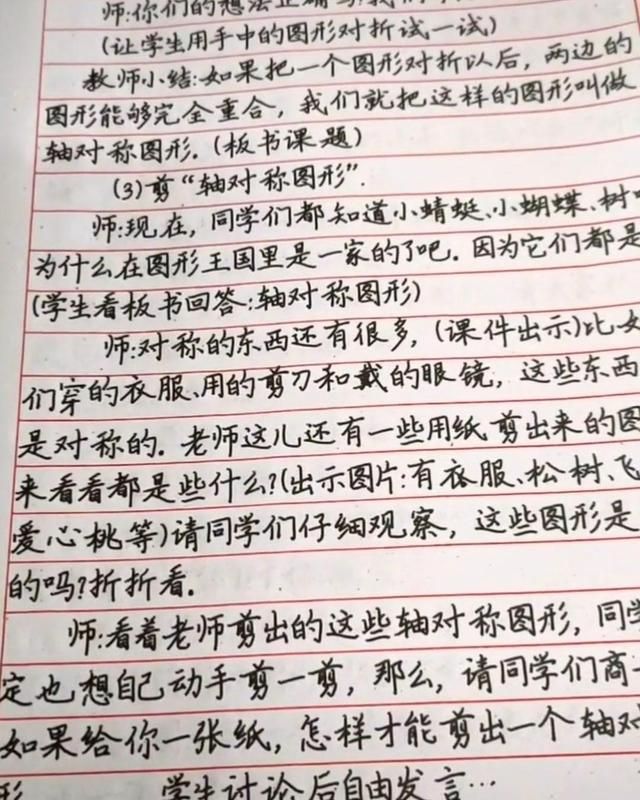 师:你们的想法正确吗?我们
(让学生用手中的图形对折试一试)
教师小结:如果把一个图形对折以后，两边的
图形能够完全重合，我们就把这样的图形叫做
轴对称图形.(板书课题)
(3)剪“轴对称图形”.
师:现在，同学们都知道小蜻蜓、小蝴蝶、树
为什么在图形王国里是一家的了吧. 因为它们都是
(学生看板书回答:轴对称图形)
师:对称的东西还有很多，(课件出示)比如
们穿的衣服、用的剪刀和戴的眼镜，这些东西
是对称的. 老师这儿还有一些用纸剪出来的图
来看看都是些什么?(出示图片:有衣服、松树、飞
爱心桃等)请同学们仔细观察，这些图形是
的吗?折折看.
师:看着老师剪出的这些轴对称图形，同学
定也想自己动手剪一剪，那么，请同学们商
如果给你一张纸，怎样才能剪出一个轴对
形 学生讨论后自由发言…